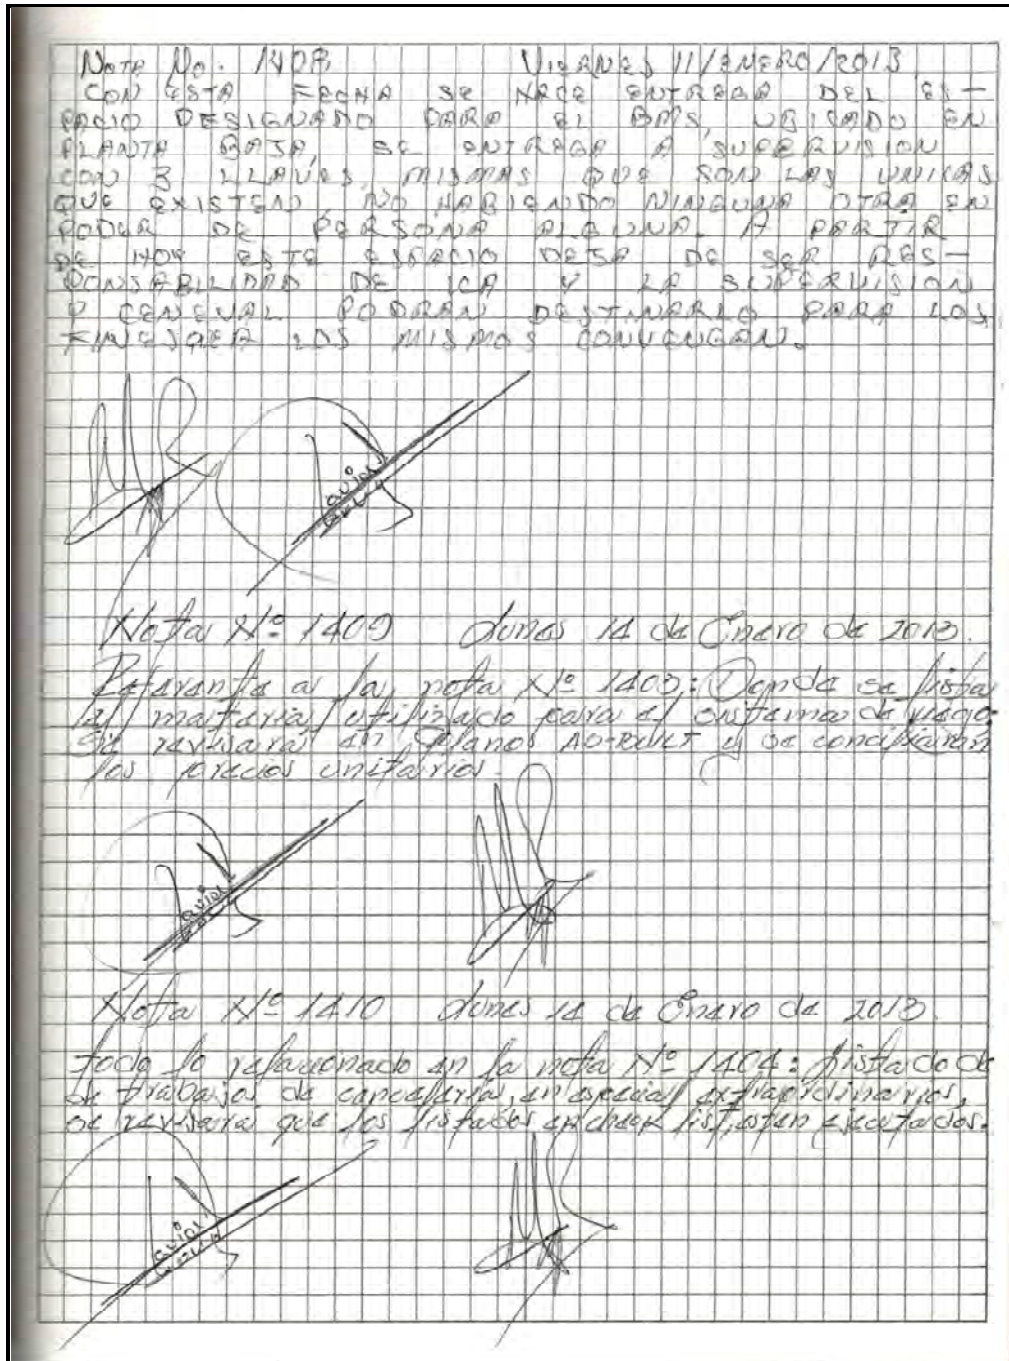 NOTA No. 1408 VIERNES 11/ENERO/2013
CON ESTA FECHA SE HACE ENTREGA DEL ES-
PACIO DESIGNADO PARA EL BAIS, UBICADO EN
PLANTA BAJA, SE ENTREGA A SUPERVISION
CON 3 LLAVES, MISMAS QUE SON LAS UNICAS
QUE EXISTEN, NO HABIENDO NINGUNA OTRA EN
PODER DE PERSONA ALGUNA. A PARTIR
DE HOY ESTE ESPACIO DEJA DE SER RES-
PONSABILIDAD DE ICA Y LA SUPERVISION
Y CENEVAL PODRAN DESTINARLO PARA LOS
FINES QUE A LOS MISMOS CONVENGAN.
Nota Nº 1409 Lunes 14 de Enero de 2013.
Referente a la nota Nº 1403: Donde se lista
el material utilizado para el sistema de riego.
Se revisara en Planos AS-BUILT y se conciliaran
los precios unitarios.
Nota Nº 1410 Lunes 14 de Enero de 2013.
Todo lo relacionado en la nota Nº 1404: Listado de
de trabajos de cancelería, en especial extraordinarios,
se revisara que los listados en check list, esten ejecutados.